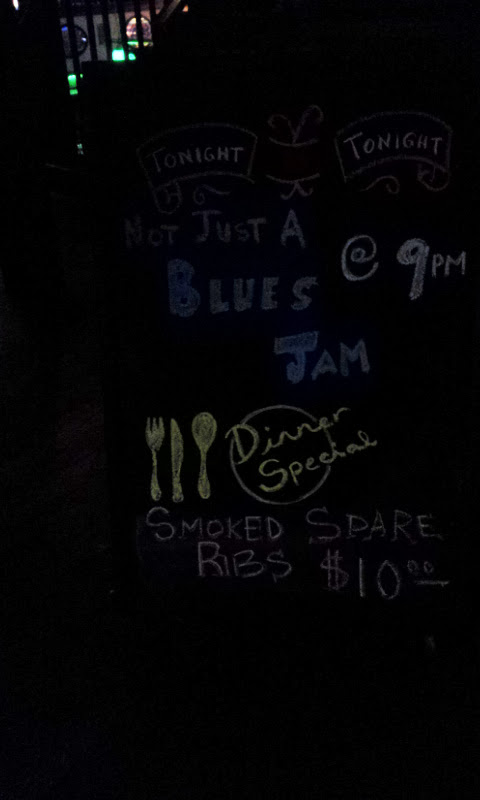 TONIGHT TONIGHT
NOT JUST A
BLUES
JAM
@ 9PM
Dinner
Special
SMOKED SPARE
RIBS $10.00